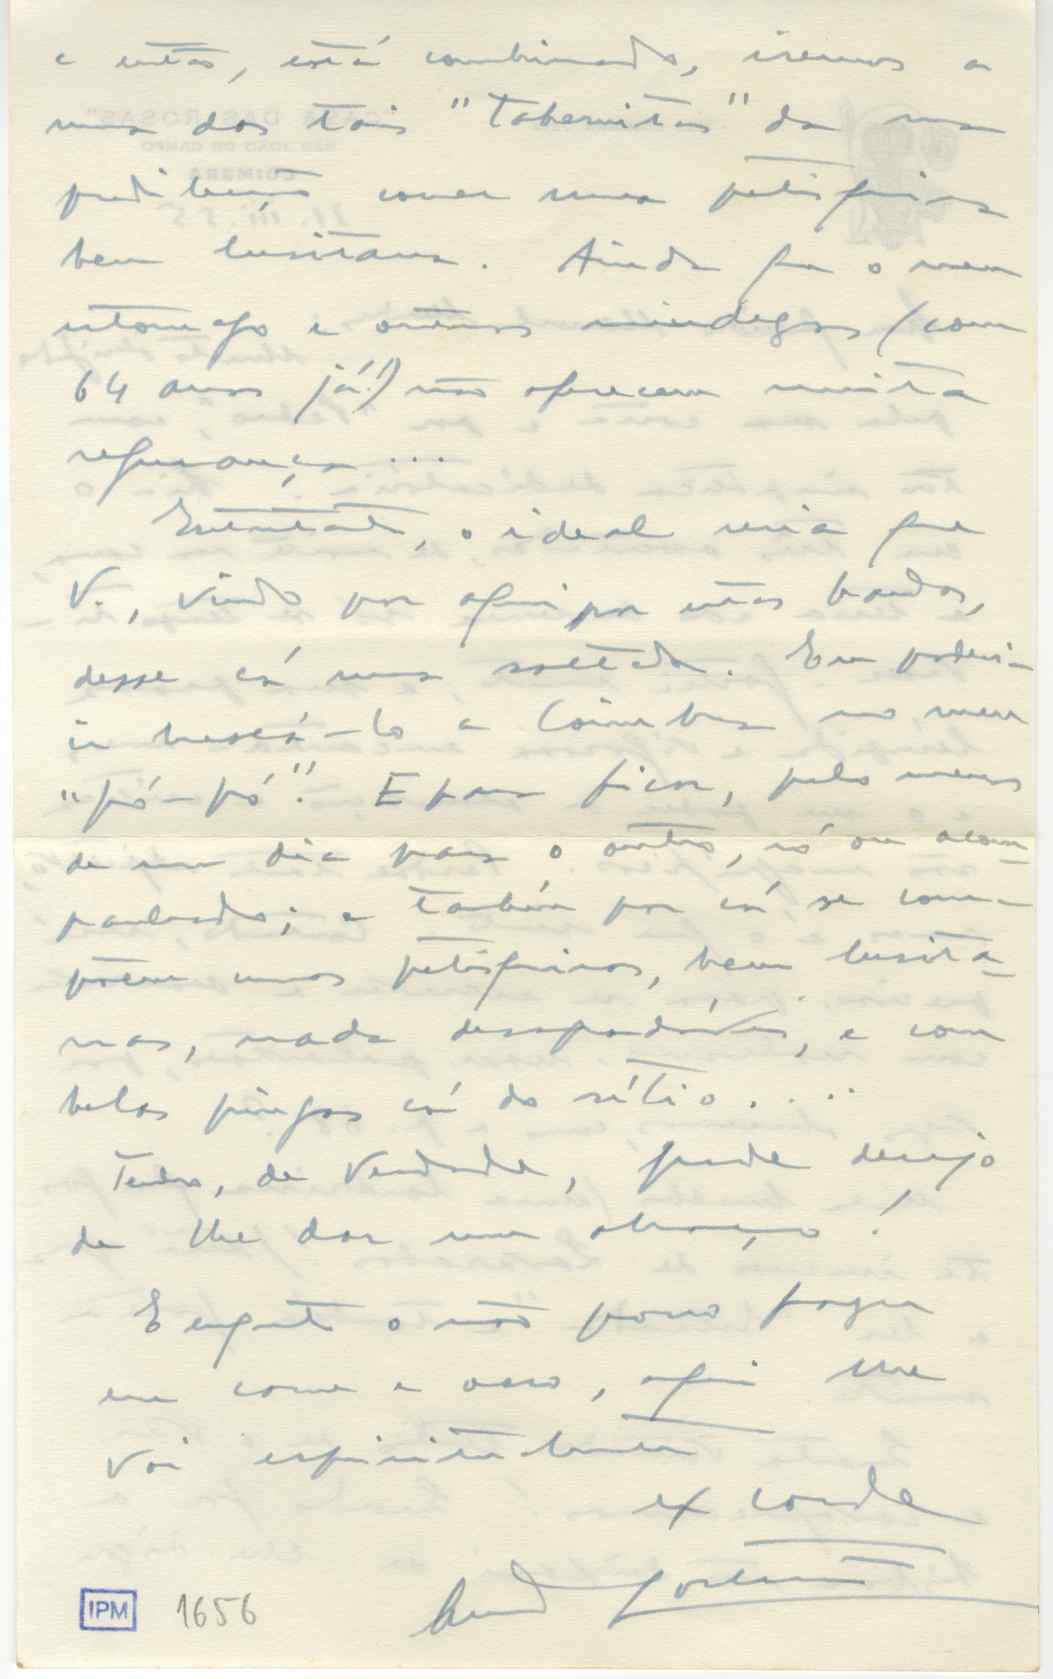 e então, está combinado, iremos a
uma das tais "tabernitas" da sua
predileção comer uma petisqueira
bem lusitana. Ainda que o meu
estomago e outros miudegos (com
64 anos já!) não ofereçam muita
segurança...
Entretanto, o ideal seria que
V., vindo por aqui por estas bandas,
desse cá uma saltada. Eu poderia
ir buscá-lo a Coimbra no meu
"pó-pó". E para ficar, pelo menos
de um dia para o outro, só ou acom-
panhado; e também por cá se com-
põem umas petisqueiras, bem lusita-
nas, nada desagradáveis, e com
belas pingas cá do sítio....
Tenho, de verdade, grande desejo
de lhe dar um abraço!
E enquanto o não posso fazer
em carne e osso, aqui lhe
vai espiritualmente
ex corde
IPM 1656